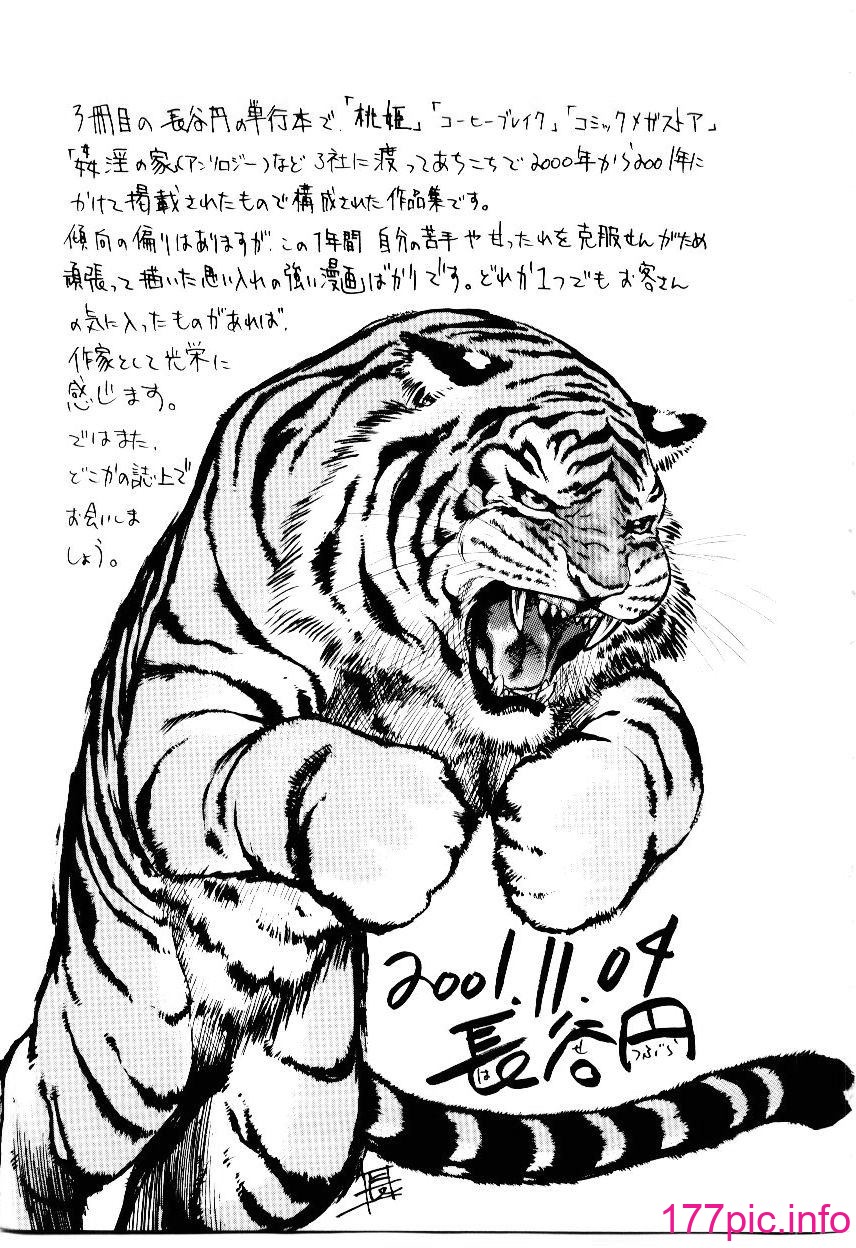 3冊目の長谷円の単行本で、「桃姫」「コーヒーブレイク」「コミックメガストア」
「姦淫の家」(アンソロジー)など3社に渡ってあちこちで2000年から2001年に
かけて掲載されたもので構成された作品集です。
傾向の偏りはありますが、この1年間 自分の苦手やせったれを克服せんがため
頑張って描いた思い入れの強い漫画ばかりです。どれか1つでもお客さん
の気に入ったものがあれば、
作家として光栄に
感じます。
ではまた、
どこかの誌上で
お会いしま
しょう。
2001.11.04
長谷円
は せ つぶら
177pic.info